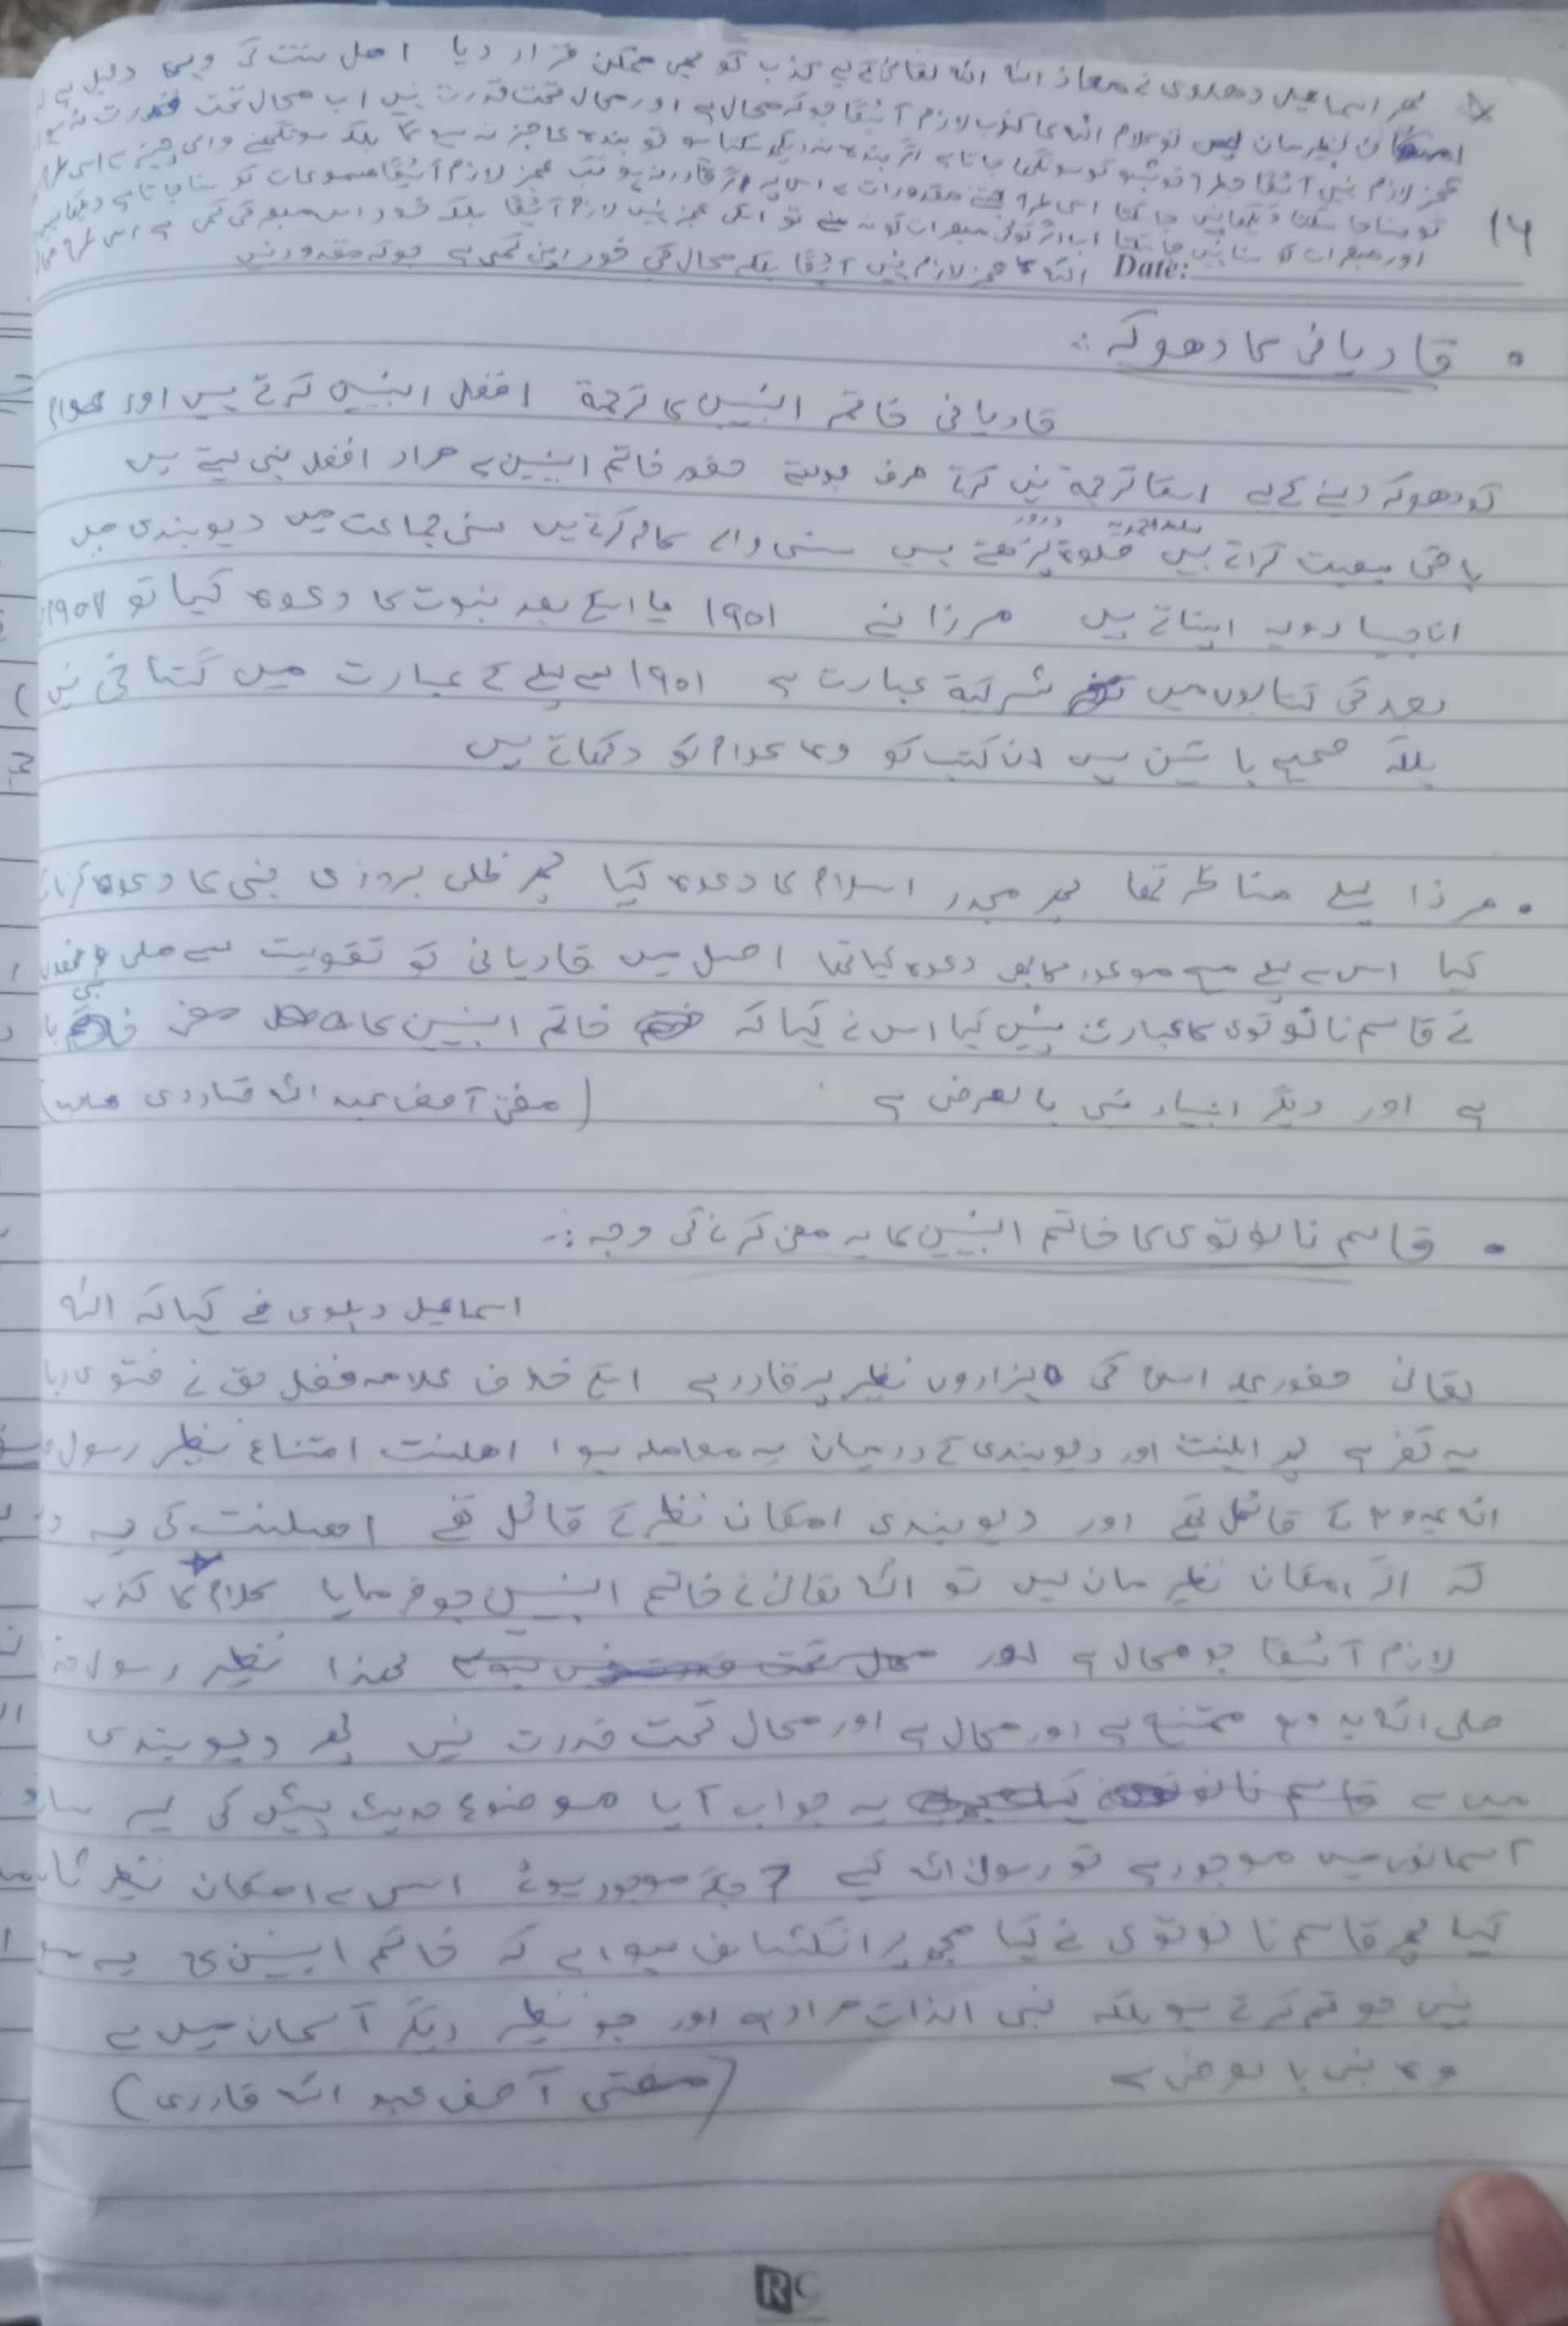 پھر اسماعیل دھلوی نے معاذ اللہ اللہ تعالیٰ کے لیے کذب کو بھی ممکن قرار دیا اھل سنت کی وہی دلیل ہے
امکان نظیر مان لیں تو کلام اللہ کا کذب لازم آئیگا جو کہ محال ہے اور محال تحت قدرت نہیں اب محال تحت قدرت نہ ہو
عجز لازم نہیں آئیگا جس طرح خوشبو کو سونگھا جاتا ہے اگر بندہ نہ دیکھ سکتا ہو تو بندہ عاجز نہ ہو گا بلکہ سونگھنے والی چیز ہے اسی طرح
کو سنا جا سکتا دیکھا نہیں جا سکتا اسی طرح جتنے مقدورات ہے اس پہ اگر قادر نہ ہو تب عجز لازم آئیگا مسموعات کو سنا جاتا ہے دیکھا نہیں
اور مبصرات کو سنا نہیں جا سکتا اب اگر کوئی مبصرات کو نہ سنے تو اسکی عجز نہیں لازم آئیگا بلکہ خود اس مبصر کی کمی ہے اسی طرح
۱۶
Date: اللہ کا عجز لازم نہیں آئیگا بلکہ محال کی خود اپنی کمی ہے جو کہ مقدور نہیں
• قادیانی کا دھوکہ :
قادیانی خاتم النبیین کا ترجمہ افضل النبیین کرتے ہیں اور عوام
کو دھوکہ دینے کے لیے اسکا ترجمہ نہیں کرتے صرف بولتے حضور خاتم النبیین ہے مراد افضل نبی لیتے ہیں
باقی بیعت کراتے ہیں سلسلہ احمدیہ صلوۃ درود پڑھتے ہیں سنی والے کام کرتے ہیں سنی جماعت میں دیوبندی میں
انا جیسا رویہ اپناتے ہیں مرزا نے ۱۹۰۱ یا اسکے بعد نبوت کا دعوہ کیا تو ۱۹۰۱
بعد کی کتابوں میں شرکیہ عبارت ہے ۱۹۰۱ سے پہلے کے عبارت میں گستاخی نہیں
بلکہ صحیح باتیں ہیں ان کتب کو وہ عوام کو دکھاتے ہیں
• مرزا پہلے مناظر تھا پھر مجدد اسلام کا دعوہ کیا پھر ظلی بروزی نبی کا دعوہ کرنا
کیا اس سے پہلے مسیح موعود کا بھی دعوہ کیا تھا اصل میں قادیانی کو تقویت سے ملی
نے قاسم نانوتوی کا عبارت پیش کیا اس نے کہا کہ خاتم النبیین کا معنی نبی با
ہے اور دیگر انبیاء نبی بالعرض ہے (مفتی آصف عبد اللہ قادری
• قاسم نانوتوی کا خاتم النبیین کا یہ معنی کرنے کی وجہ :
اسماعیل دہلوی نے کہا کہ اللہ
تعالیٰ حضور علیہ اس کی ہزاروں نظیر پر قادر ہے اسکے خلاف علامہ فضل حق نے فتوی دیا
یہ کفر ہے پھر اہلسنت اور دیوبندی کے درمیان یہ معاملہ ہوا اھلسنت امتناع نظیر رسول
اللہ کے قائل تھے اور دیوبندی امکان نظیر کے قائل تھے اھلسنت کی یہ
کہ اگر امکان نظیر مان لیں تو اللہ تعالیٰ نے خاتم النبیین جو فرمایا کلام کا کذب
لازم آئیگا جو محال ہے اور محال تحت قدرت نہیں ہوتا لھذا نظیر رسول
صلی اللہ علیہ وسلم ممتنع ہے اور محال ہے اور محال تحت قدرت نہیں پھر دیوبندی
میں سے قاسم نانو یہ جواب آیا موضوع حدیث پیش کی یہ
آسمانوں میں موجود ہے تو رسول اللہ کیسے 7 جگہ موجود ہوئے اس سے امکان نظیر
کیا پھر قاسم نانوتوی نے کہا مجھ پر انکشاف ہوا ہے کہ خاتم النبیین کا یہ
نہیں جو تم کرتے ہو بلکہ نبی الذات مراد ہے اور جو نظیر دیگر آسمان میں ہے
وہ نبی بالعرض ہے (مفتی آصف عبد اللہ قادری)
RC